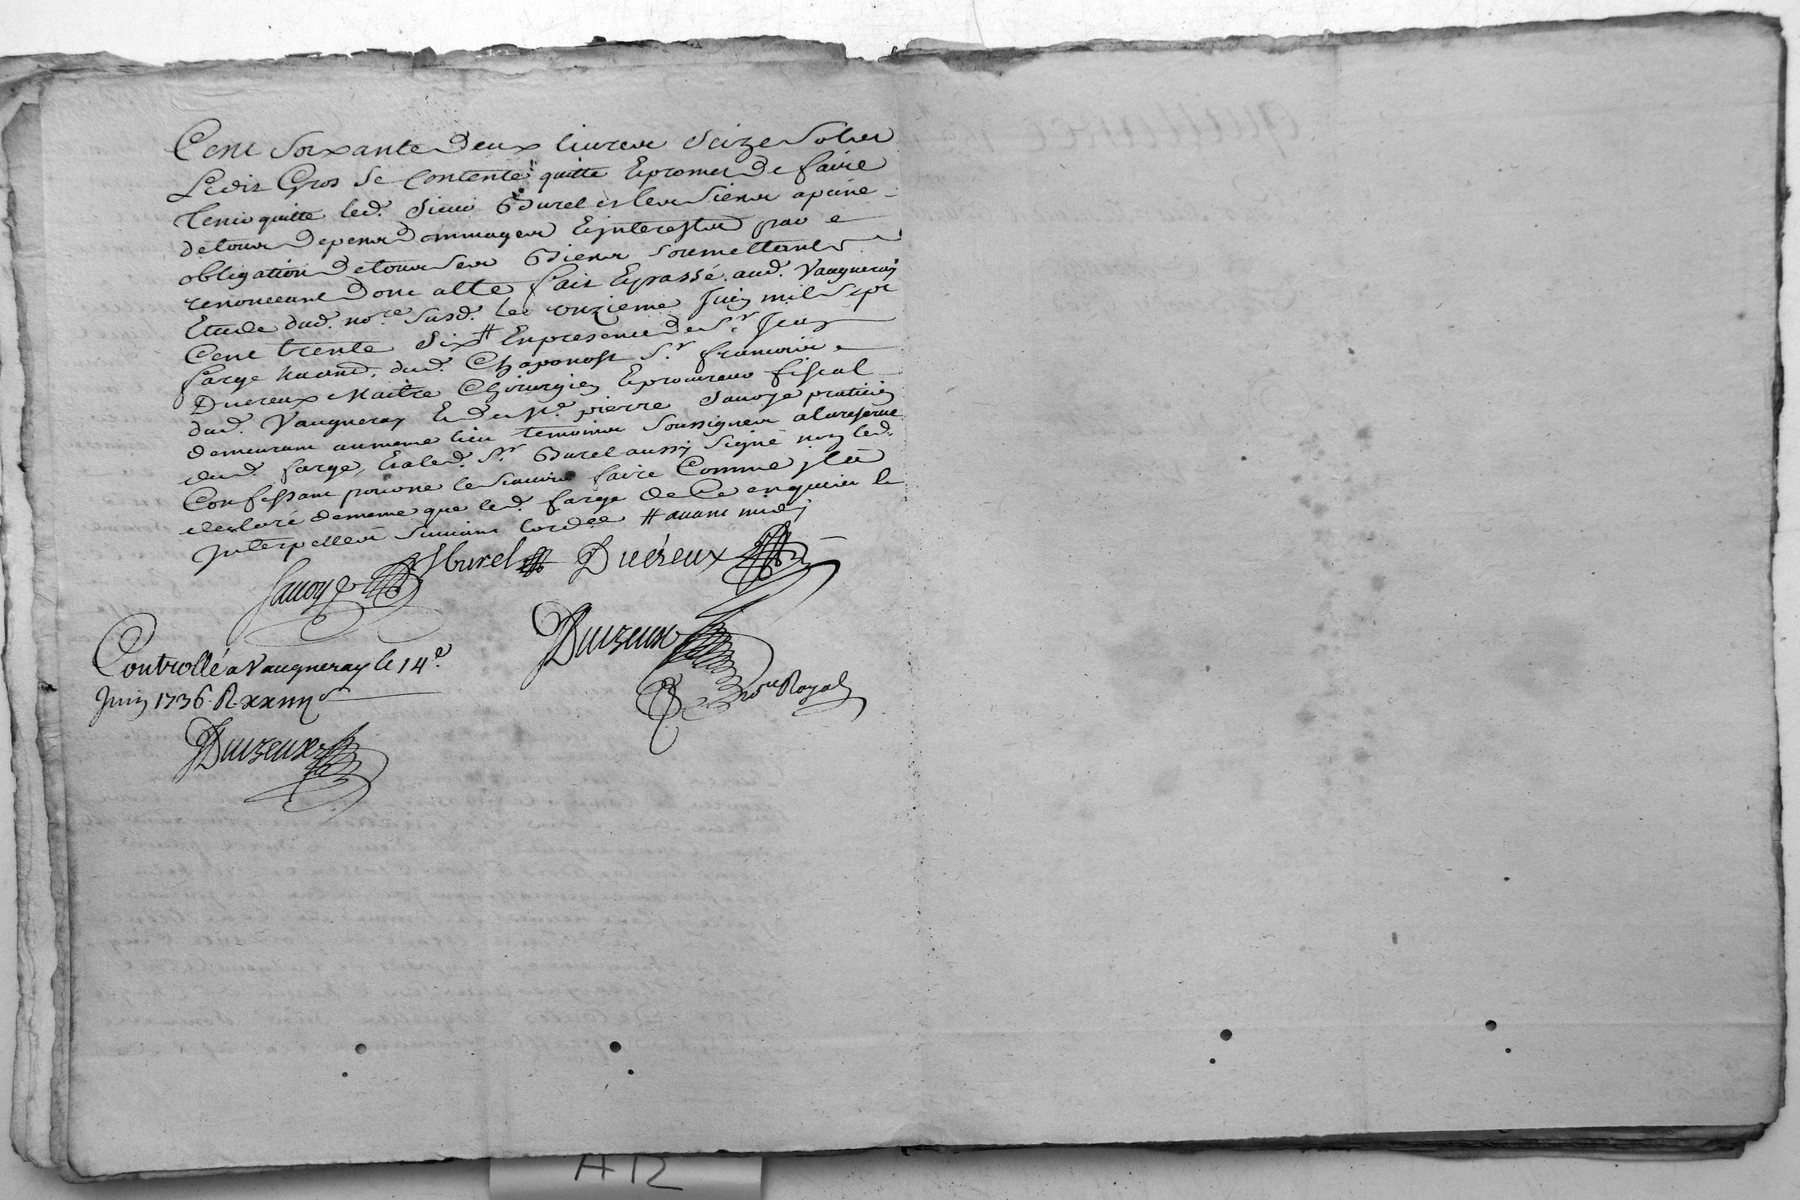 Cent Soixante deux livres Seize Sols
Ledit Gros Se Contente quitte Et promet De faire
tenir quitte led. Sieur Burel et les Siens a peine
de tous depens dommages Et interests par
obligation De tous Ses Biens Soumettant
renonceant Dont atte fait Et passé aud. Vaugneray
Etude dud. nore. Susd. le onzieme Juin mil Sept
Cent trente Six # En presence de Sr. Jean
farge dud. Chaponost Sr. francois
Ducreux Maitre Chirurgien Et procureur fiscal
dud. Vaugneray Et de Me. pierre Savoye praticien
demeurant au meme lieu temoins Soussignes a la reserve
dud. farge, Et a led. Sr. Burel aussi Signé non led.
Confessant pour ne le Scavoir faire Comme il a
declaré de meme que led. farge de Ce enquis et
Interpellés Suivant lord.ce # avant midy
Savoye Burel Ducreux
Ducreux
nore Royal
Controllé a Vaugneray le 14e.
Juin 1736. R.
Ducreux
A12